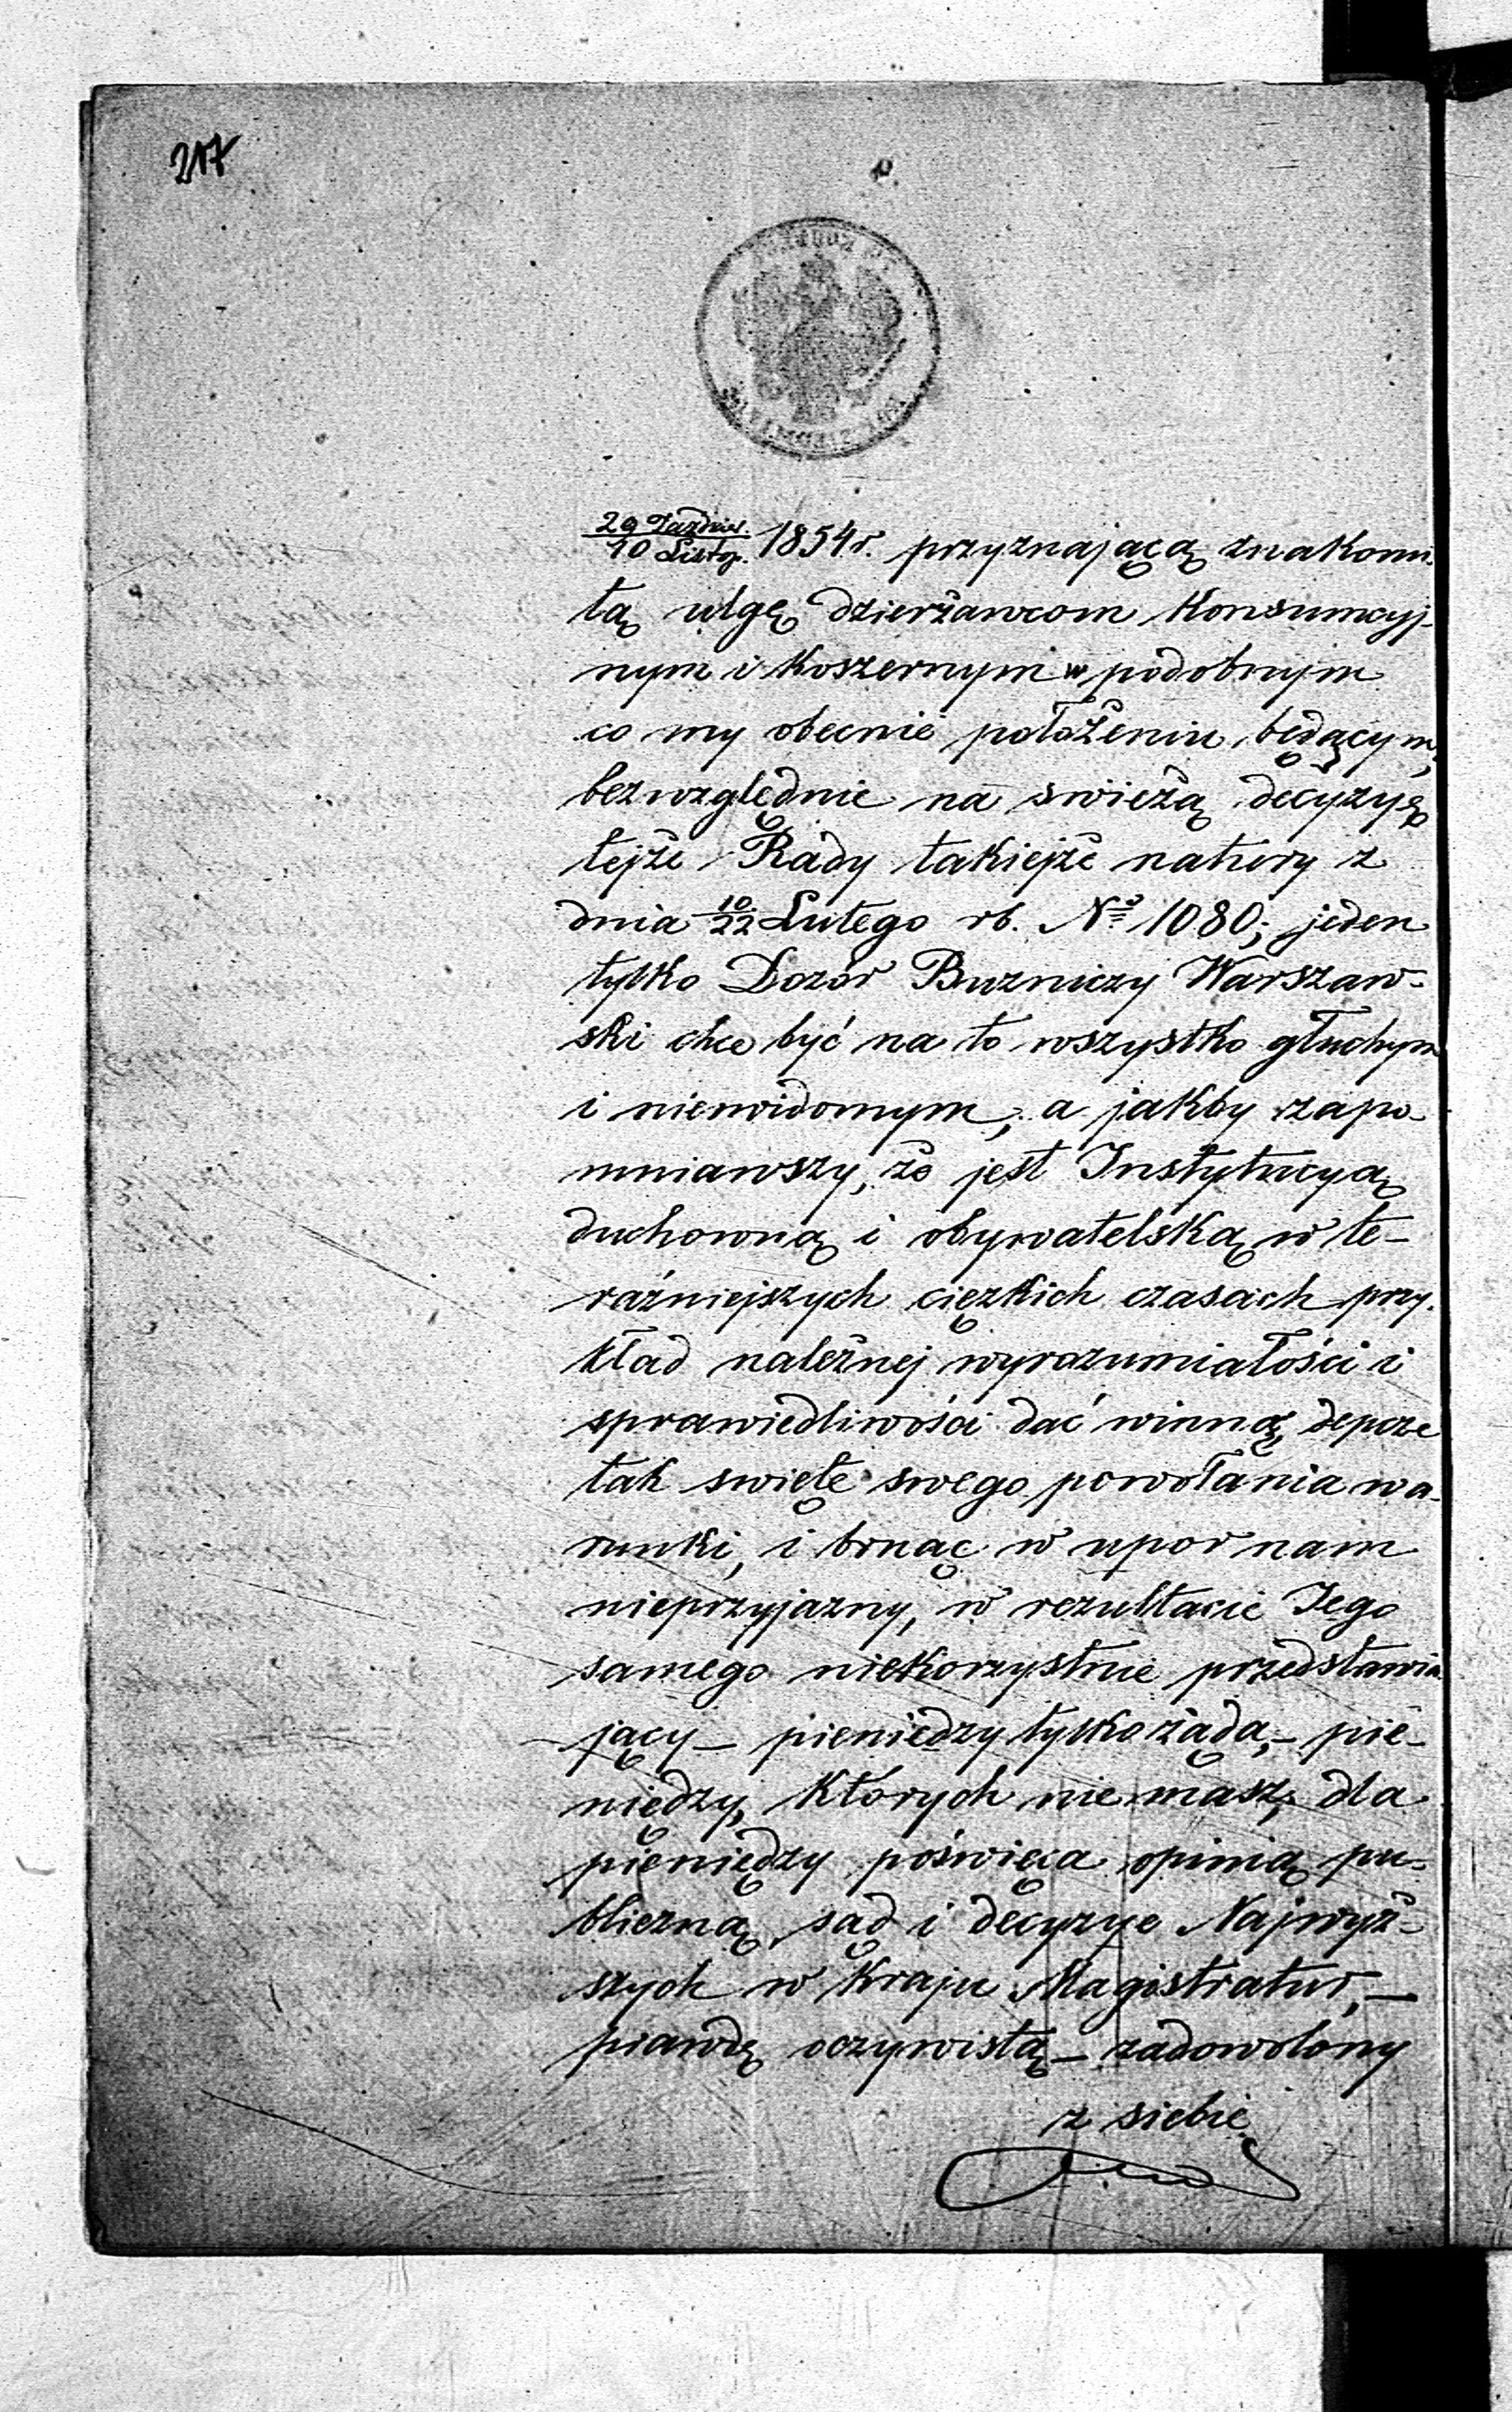 217
29 Paździer. / 10 Listop. 1854 r. przyznającą znakomi-
tą ulgę dzierżawcom Konsumcyj-
nym i Koszernym w podobnym
co my obecnie położeniu będącym,
bezwzględnie na swieżą decyzyę
tejże Rady takiejże natury z
dnia 10/22 Lutego rb. No 1080; jeden
tylko Dozór Bużniczy Warszaw-
ski chce być na to wszystko głuchym
i niewidomym, a jakby zapo-
mniawszy, że jest Instytucyą
duchowną i obywatelską w te-
raźniejszych ciężkich czasach przy-
kład należnej wyrozumiałości i
sprawiedliwości dać winną, depcze
tak swięte swego powołania wa-
runki, i brnąc w upor nam
nieprzyjazny, w rezultacie Jego
samego niekorzystnie przedstawia-
jący – pieniędzy tylko żąda, – pie-
niędzy, których nie masz, dla
pieniędzy poświęca opinią pu-
bliczną, sąd i decyzye Najwyż-
szych w Kraju Magistratur, –
prawdę oczywistą – zadowolony
z siebie